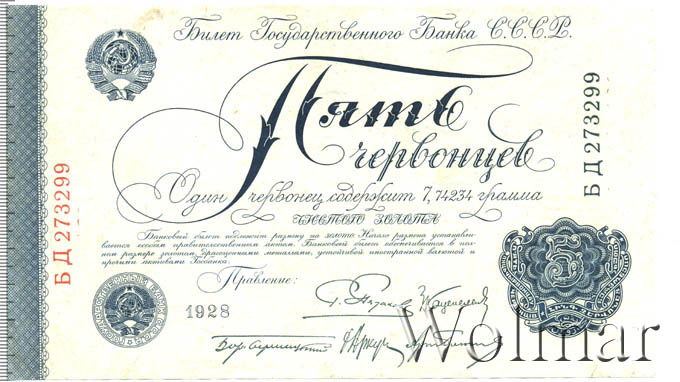 Билет Государственного Банка С.С.С.Р.
Пять
червонцев
Один червонец содержит 7,74234 грамма
чистого золота
Банковый билет подлежит размену на золото. Начало размена устанавли-
вается особым правительственным актом. Банковый билет обеспечивается в пол-
ном размере золотом, драгоценными металлами, устойчивой иностранной валютой и
прочими активами Госбанка.
Правление:
1928
БД 273299
БД 273299
5
Wolmar